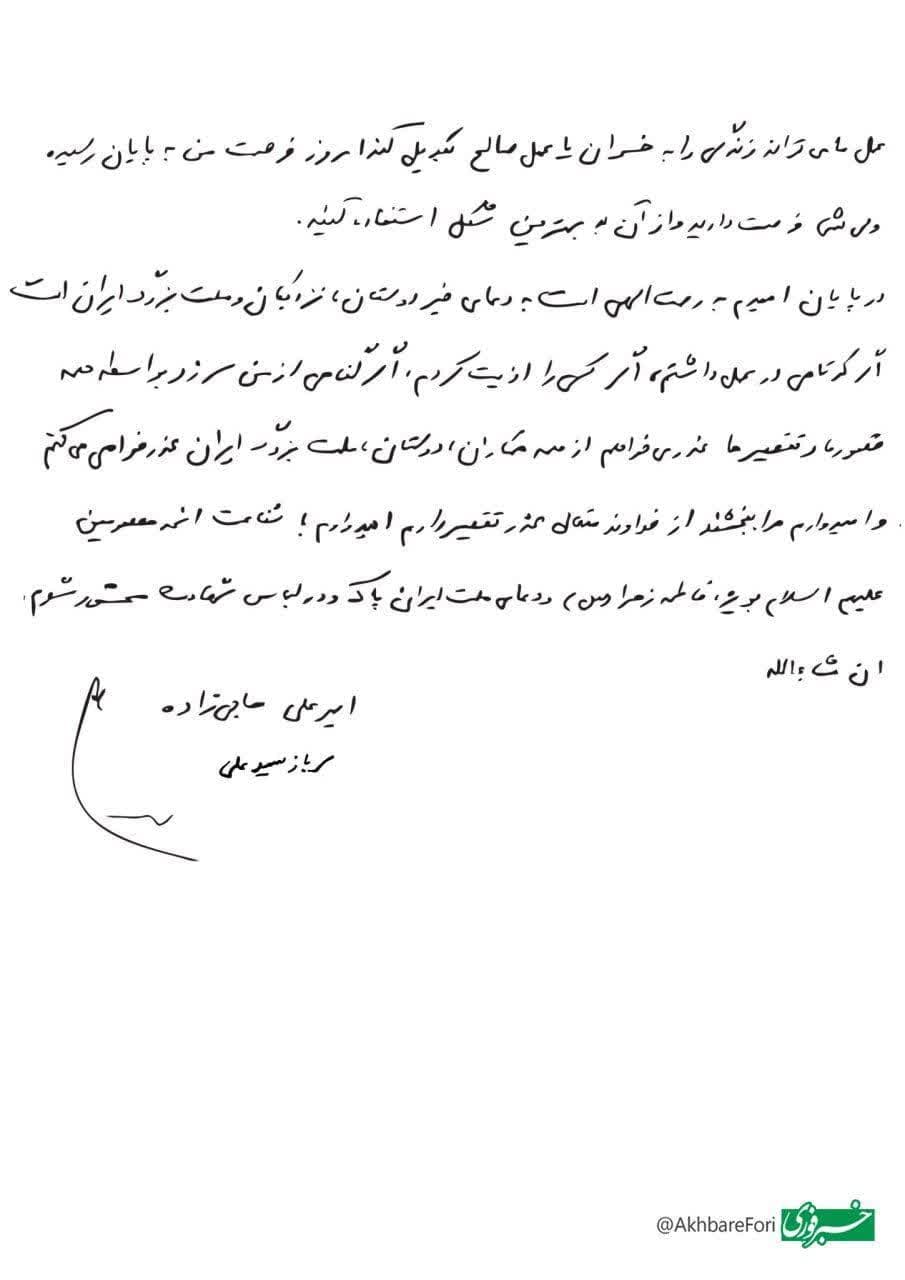 عمل ما می‌تواند زندگی را به خسران یا عمل صالح تبدیل کند امروز فرصت من به پایان رسیده
ولی شما فرصت دارید و از آن به بهترین شکل استفاده کنید.
در پایان امیدم به رحمت الهی است به دعای خیر دوستان، نزدیکان و ملت بزرگ ایران است
اگر کوتاهی در عمل داشتم، اگر کسی را اذیت کردم، اگر گناهی از من سر زد بواسطه همه
قصورها و تقصیرها عذر می‌خواهم از همه همکاران، دوستان، ملت بزرگ ایران عذرخواهی می‌کنم
و امیدوارم مرا ببخشند از خداوند متعال عذر تقصیر دارم امیدوارم با شفاعت ائمه معصومین
علیهم السلام بویژه فاطمه زهرا (س) و دعای ملت ایران پاک و در لباس شهادت محشور شوم.
ان شاءالله
امیرعلی حاجی‌زاده
سرباز سیدعلی
@AkhbareFori
خبرفوری